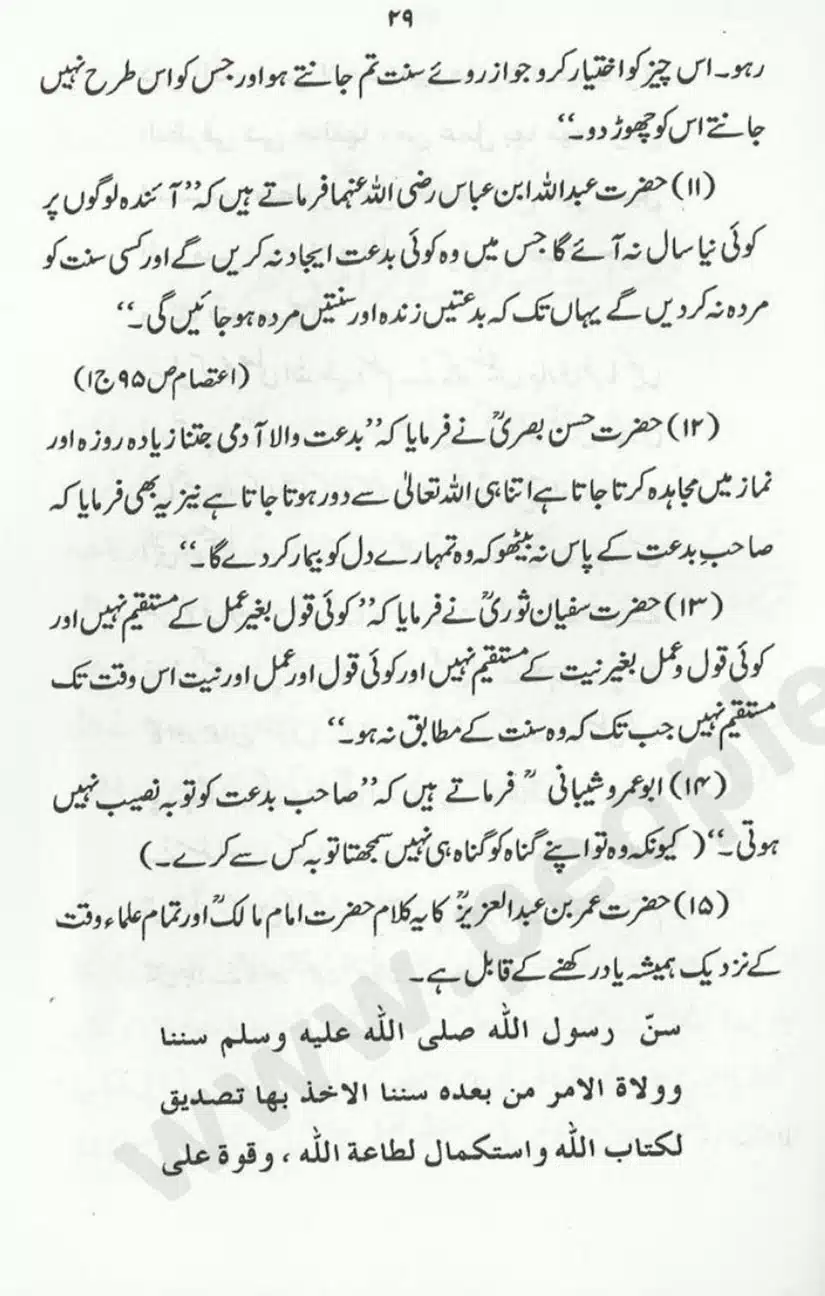 ۲۹
رہو۔ اس چیز کو اختیار کرو جو ازروئے سنت تم جانتے ہو اور جس کو اس طرح نہیں
جانتے اس کو چھوڑ دو۔‘‘
(۱۱) حضرت عبداللہ ابن عباس رضی اللہ عنہما فرماتے ہیں کہ ’’آئندہ لوگوں پر
کوئی نیا سال نہ آئے گا جس میں وہ کوئی بدعت ایجاد نہ کریں گے اور کسی سنت کو
مردہ نہ کردیں گے یہاں تک کہ بدعتیں زندہ اور سنتیں مردہ ہوجائیں گی۔‘‘
(اعتصام ص ۹۵ ج ۱)
(۱۲) حضرت حسن بصریؒ نے فرمایا کہ ’’بدعت والا آدمی جتنا زیادہ روزہ اور
نماز میں مجاہدہ کرتا جاتا ہے اتنا ہی اللہ تعالیٰ سے دور ہوتا جاتا ہے نیز یہ بھی فرمایا کہ
صاحبِ بدعت کے پاس نہ بیٹھو کہ وہ تمہارے دل کو بیمار کردے گا۔‘‘
(۱۳) حضرت سفیان ثوریؒ نے فرمایا کہ ’’کوئی قول بغیر عمل کے مستقیم نہیں اور
کوئی قول و عمل بغیر نیت کے مستقیم نہیں اور کوئی قول اور عمل اور نیت اس وقت تک
مستقیم نہیں جب تک کہ وہ سنت کے مطابق نہ ہو۔‘‘
(۱۴) ابوعمرو شیبانی ؒ فرماتے ہیں کہ ’’صاحب بدعت کو توبہ نصیب نہیں
ہوتی۔‘‘ (کیونکہ وہ تو اپنے گناہ کو گناہ ہی نہیں سمجھتا توبہ کس سے کرے۔)
(۱۵) حضرت عمر بن عبدالعزیزؒ کا یہ کلام حضرت امام مالکؒ اور تمام علماء وقت
کے نزدیک ہمیشہ یاد رکھنے کے قابل ہے۔
سنّ رسول الله صلى الله عليه وسلم سننا
وولاة الامر من بعده سننا الاخذ بها تصديق
لكتاب الله واستكمال لطاعة الله ، وقوة على
www.people